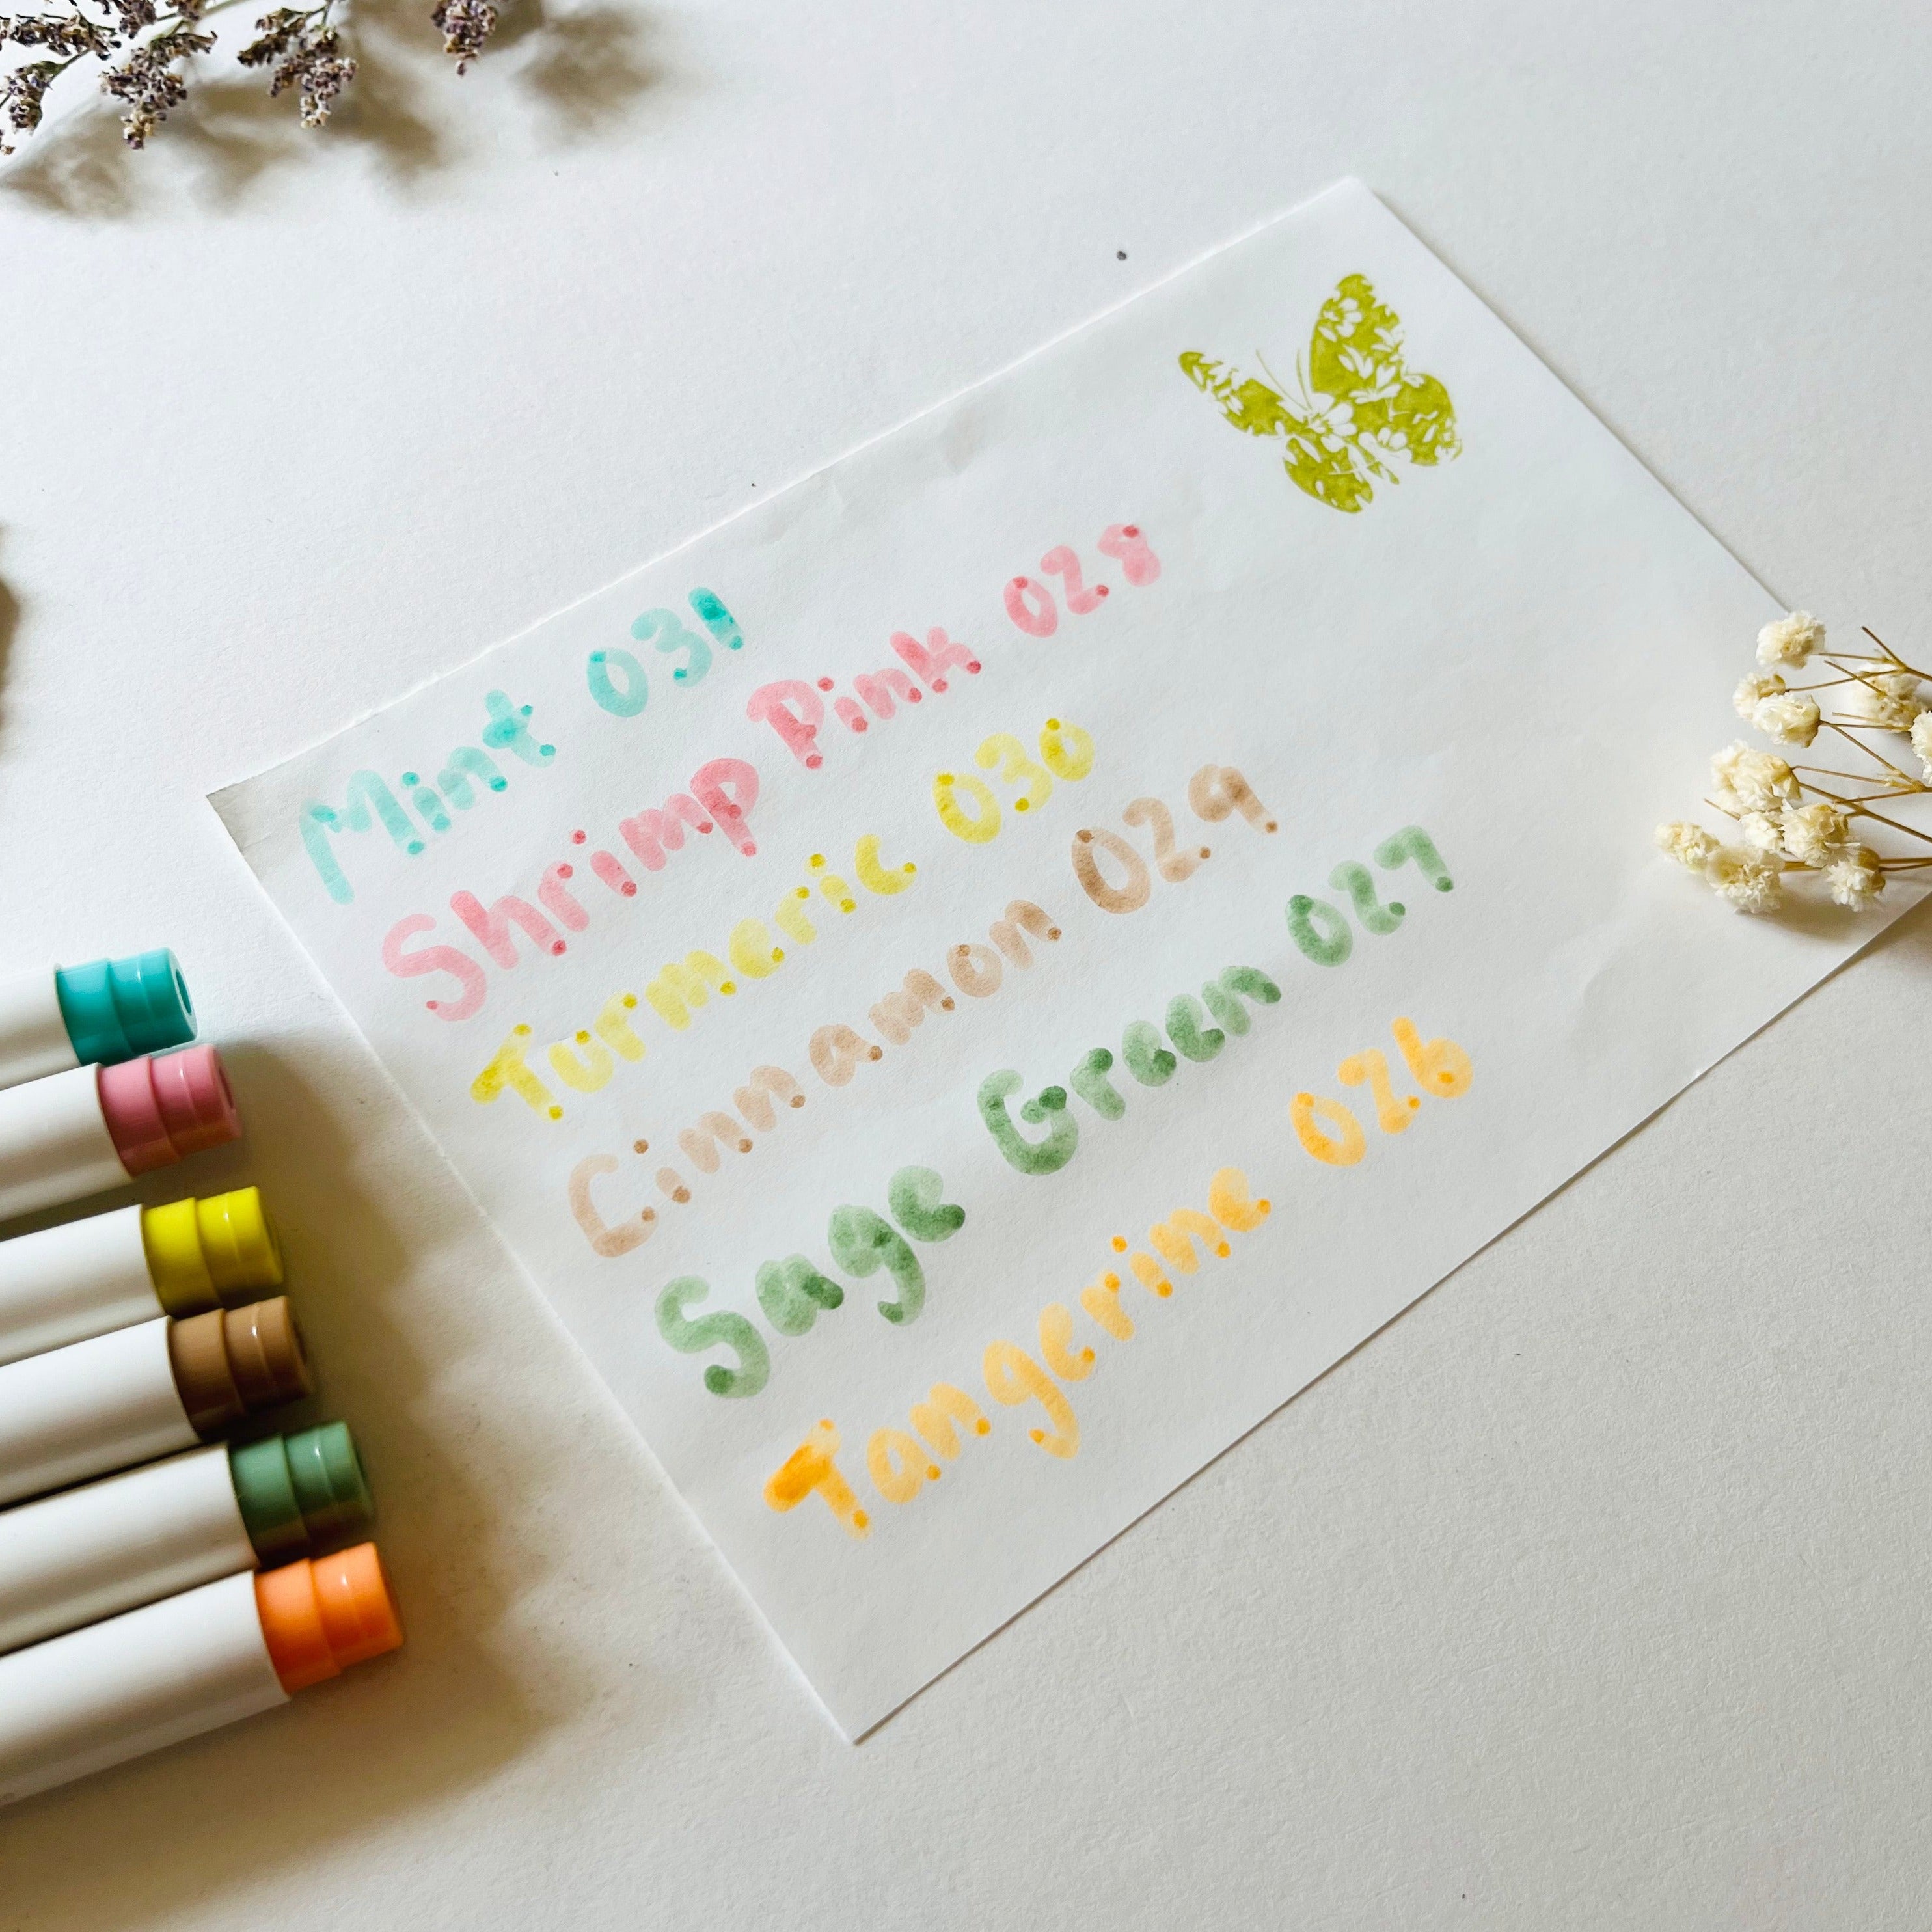 Mint 031
Shrimp Pink 028
Turmeric 030
Cinnamon 029
Sage Green 027
Tangerine 026